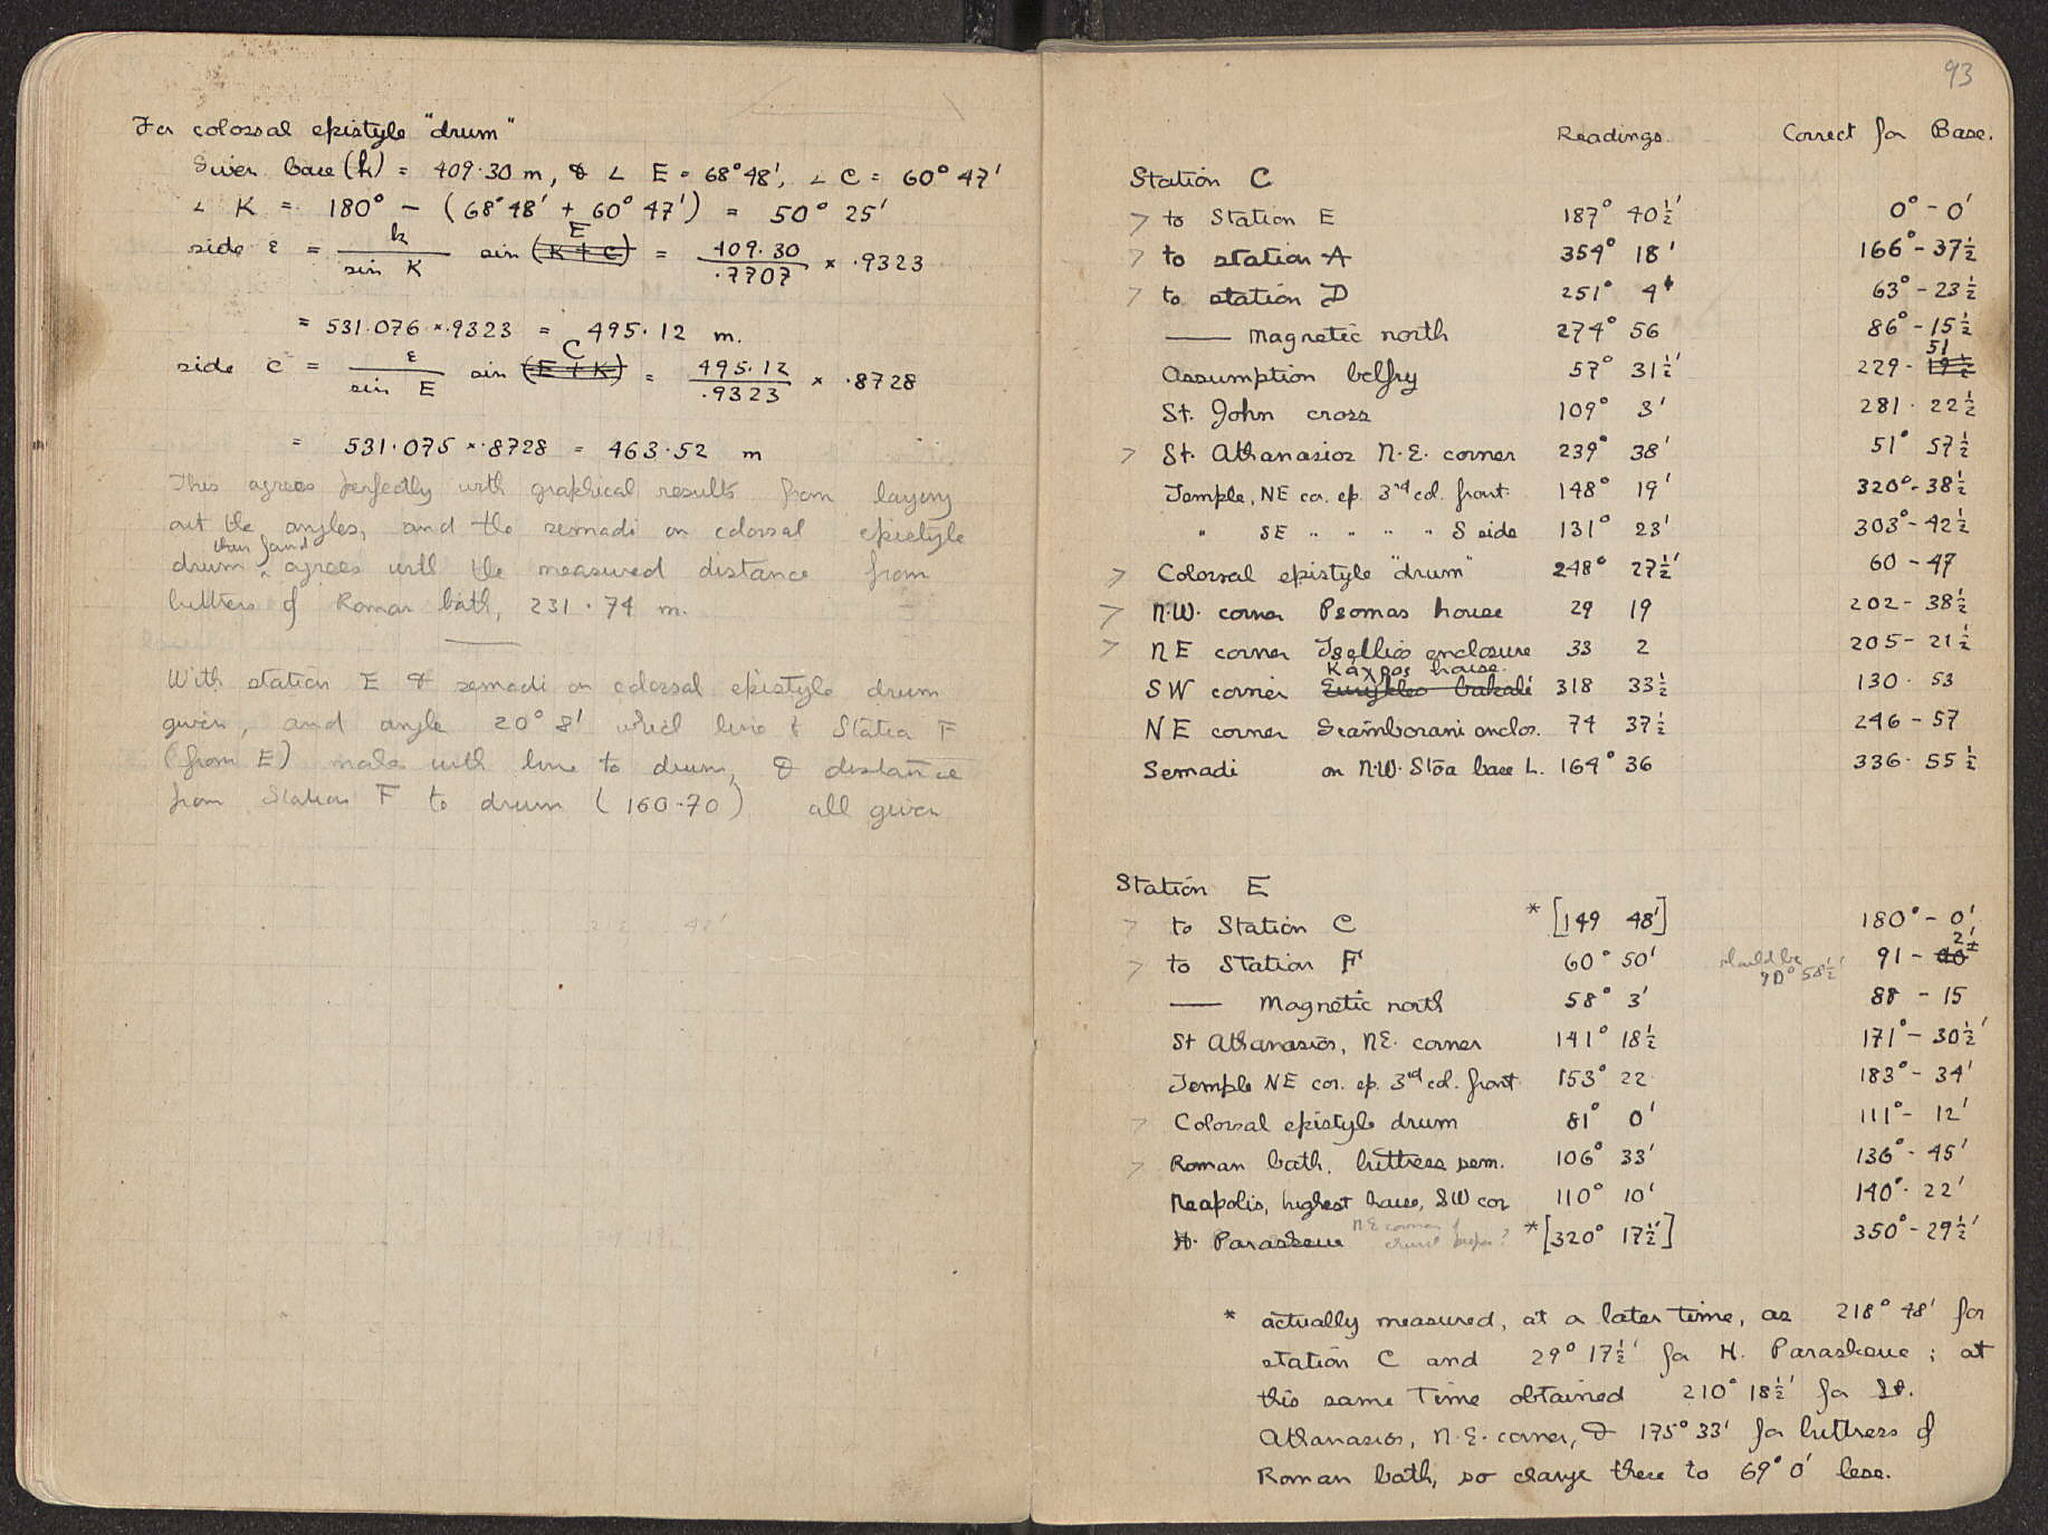 For colossal epistyle "drum"
Given base (k) = 409.30 m, & ∠ E = 68° 48', ∠ C = 60° 47'
∠ K = 180° - (68° 48' + 60° 47') = 50° 25'
side ε = k / sin K sin (K + C) E = 409.30 / .7707 × .9323
= 531.076 × .9323 = 495.12 m.
side c = ε / sin E sin (E + K) C = 495.12 / .9323 × .8728
= 531.075 × .8728 = 463.52 m
This agrees perfectly with graphical results from laying
out the angles, and the semadi on colossal epistyle
drum thus found agrees with the measured distance from
buttress of Roman bath, 231.74 m.
With station E & semadi on colossal epistyle drum
given, and angle 20° 8' which line to Station F
(from E) makes with line to drum, & distance
from Station F to drum (160.70) all given
93
Readings. Correct for Base.
Station C
> to Station E 187° 40½' 0° - 0'
> to station A 354° 18' 166° - 37½
> to station D 251° 4' 63° - 23½
—— Magnetic north 274° 56 86° - 15½
Assumption belfry 57° 31½' 229 - 19½ 51
St. John cross 109° 3' 281. 22½
> St. Athanasios N.E. corner 239° 38' 51° 57½
Temple, NE cor. ep. 3rd col. front. 148° 19' 320° - 38½
" SE " " " " S side 131° 23' 303° - 42½
> Colossal epistyle "drum" 248° 27½' 60 - 47
> N.W. corner Psomas house 29 19 202 - 38½
> NE corner Tsellios enclosure 33 2 205 - 21½
SW corner Eurykleo bakali Κάχρος house. 318 33½ 130. 53
NE corner Sramborani enclos. 74 37½ 246 - 57
Semadi on N.W. Stoa base L. 164° 36 336. 55½
Station E
> to Station C * [149 48'] 180° - 0'
> to Station F 60° 50' should be 90° 58½' 91 - 40 2'±
—— Magnetic north 58° 3' 88 - 15
St Athanasios, NE. corner 141° 18½ 171° - 30½'
Temple NE cor. ep. 3rd col. front 153° 22 183° - 34'
> Colossal epistyle drum 81° 0' 111° - 12'
> Roman bath. buttress sem. 106° 33' 136° - 45'
Neapolis, highest house, SW cor 110° 10' 140°. 22'
H. Paraskeue NE corner of church proper? * [320° 17½'] 350° - 29½'
* actually measured, at a later time, as 218° 48' for
station C and 29° 17½' for H. Paraskeue ; at
this same time obtained 210° 18½' for St.
Athanasios, N.E. corner, & 175° 33' for buttress of
Roman bath, so change these to 69° 0' less.